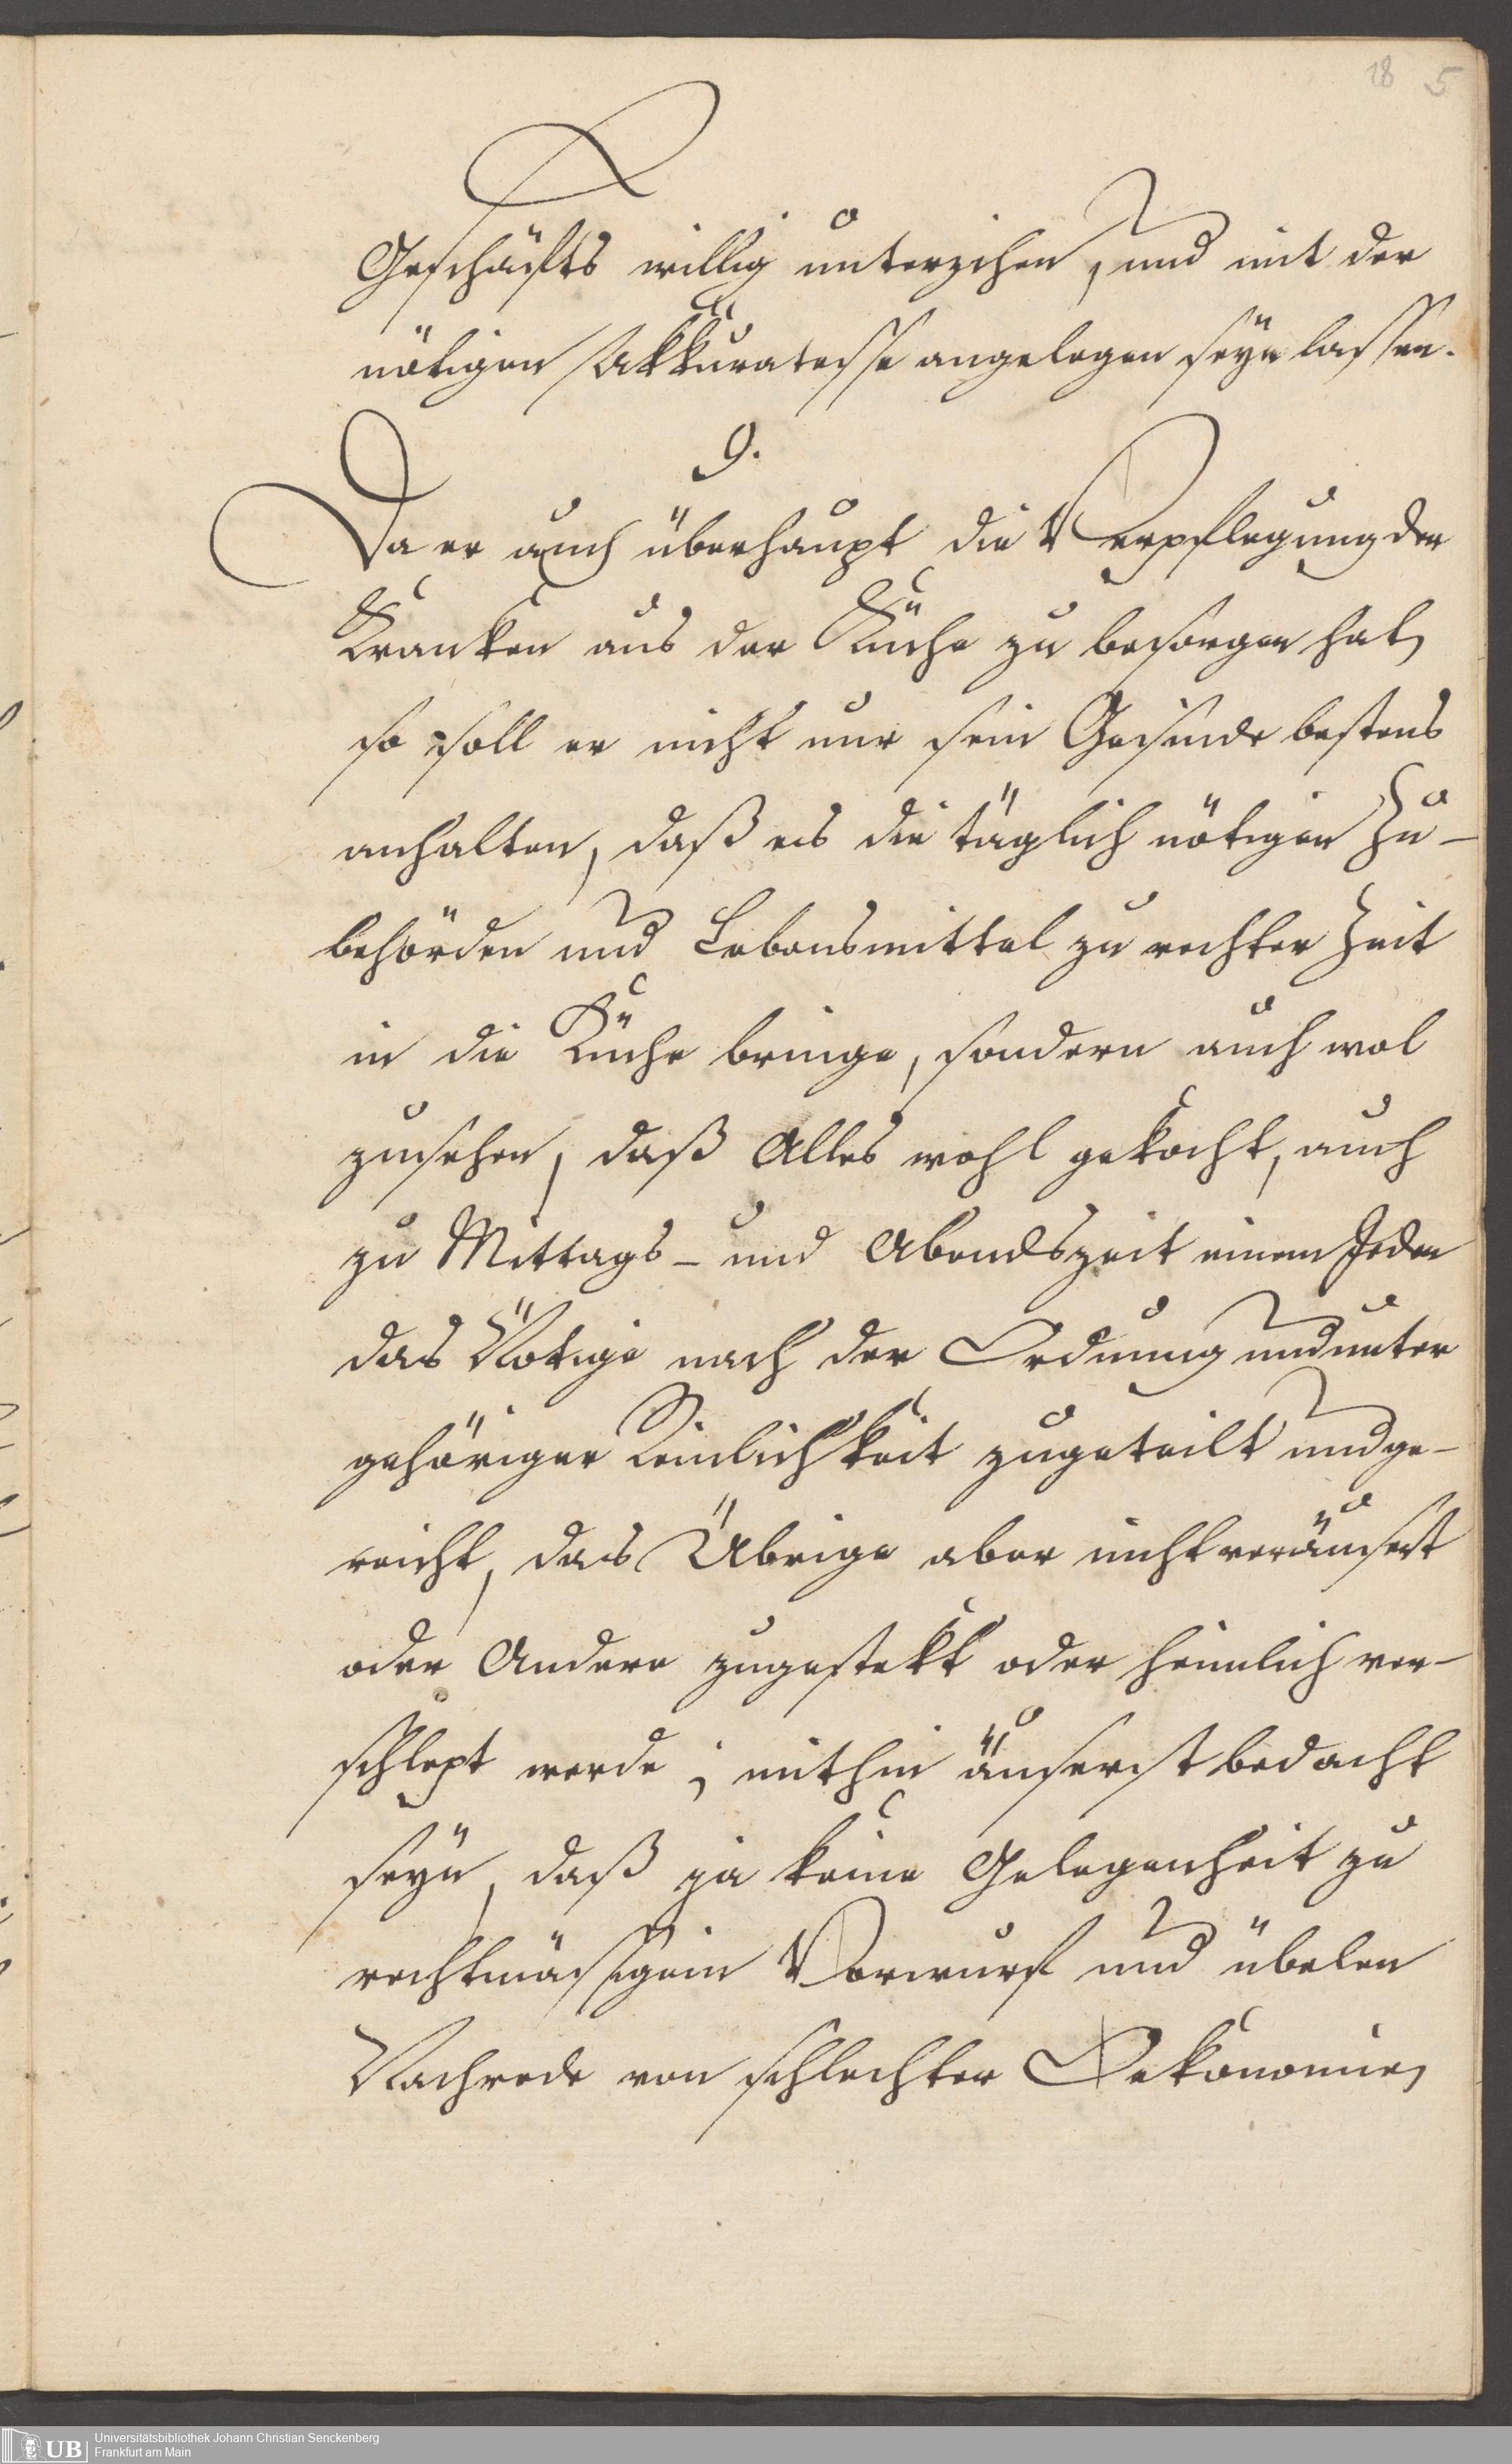 28 5
Geschäfts willig unterzihen, und mit der
nötigen Akkuratesse angelegen seÿn lassen.
9.
Da er auch überhaupt die Verpflegung der
Kranken aus der Küche zu besorgen hat,
so soll er nicht nur sein Gesinde bestens
anhalten, daß es die täglich nötigen Zu-
behörden und Lebensmittel zu rechter Zeit
in die Küche bringe, sondern auch wol
zusehen, daß Alles wohl gekocht, auch
zu Mittags- und Abendszeit einem Jeden
das Nötige nach der Ordnung und unter
gehöriger Reinlichkeit zugeteilt und ge-
reicht, das Übrige aber nicht veräusert
oder Andere zugestekt oder heimlich ver-
schlept werde; mithin äuserst bedacht
seÿn, daß ja keine Gelegenheit zu
rechtmässigem Vorwurf und übelen
Nachrede von schlechter Oekonomie,
UB Universitätsbibliothek Johann Christian Senckenberg
Frankfurt am Main